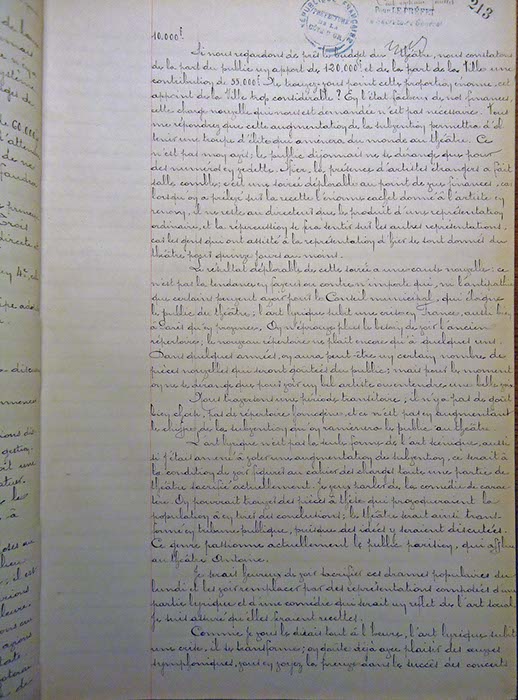 213
10.000f.
Si nous regardons de près le budget du théâtre, nous constatons
de la part du public un apport de 120.000f et de la part de la Ville une
contribution de 55.000f. Ne trouvez-vous point cette proportion énorme, cet
appoint de la Ville trop considérable ? En l'état fâcheux de nos finances,
cette charge nouvelle qui nous est demandée n'est pas nécessaire. Vous
me répondrez que cette augmentation de la subvention permettra d'ob-
tenir une troupe d'élite qui amènera du monde au théâtre. Ce
n'est pas mon avis ; le public dijonnais ne se dérange que pour
des numéros en vedette. Hier, la présence d'artistes étrangers a fait
salle comble ; c'est une soirée déplorable au point de vue finances, car
lorsqu'on a prélevé sur la recette l'énorme cachet donné à l'artiste en
renom, il ne reste au directeur que le produit d'une représentation
ordinaire, et la répercussion se fera sentir sur les autres représentations,
car les gens qui ont assisté à la représentation d'hier se sont donnés du
théâtre pour quinze jours au moins.
Le résultat déplorable de cette soirée a une cause nouvelle : ce
n'est pas la tendance en faveur ou contre n'importe qui, ni l'antipathie
que certains peuvent avoir pour le Conseil municipal, qui éloigne
le public du théâtre, l'art lyrique subit une crise en France, aussi bien
à Paris qu'en province. On n'éprouve plus le besoin de voir l'ancien
répertoire, le nouveau répertoire ne plaît encore qu'à quelques uns.
Dans quelques années, on aura peut-être un certain nombre de
pièces nouvelles qui seront goûtées du public ; mais pour le moment
on ne se dérange que pour voir un bel artiste ou entendre une belle voix.
Nous traversons une période transitoire, il n'y a pas de goût
bien choisi, pas de répertoire homogène, et ce n'est pas en augmentant
le chiffre de la subvention qu'on ramènera le public au théâtre.
L'art lyrique n'est pas la seule forme de l'art scénique, aussi
si j'étais amené à voter une augmentation de subvention, ce serait à
la condition de voir figurer au cahier des charges toute une partie de
théâtre sacrifiée actuellement. Je veux parler de la comédie de carac-
tère. On pourrait trouver des pièces à thèse qui provoqueraient la
population à en tirer des conclusions ; le théâtre serait ainsi trans-
formé en tribune publique, puisque des idées y seraient discutées.
Ce genre passionne actuellement le public parisien, qui afflue
au théâtre Antoine.
Je serais heureux de voir sacrifier ces drames populaires du
lundi et les voir remplacer par des représentations composées d'une
partie lyrique et d'une comédie qui serait un reflet de l'art social.
Je suis assuré qu'elles feraient recettes.
Comme je vous le disais tout à l'heure, l'art lyrique subit
une crise, il se transforme ; on écoute déjà avec plaisir des œuvres
symphoniques, vous en voyez la preuve dans le succès des concerts